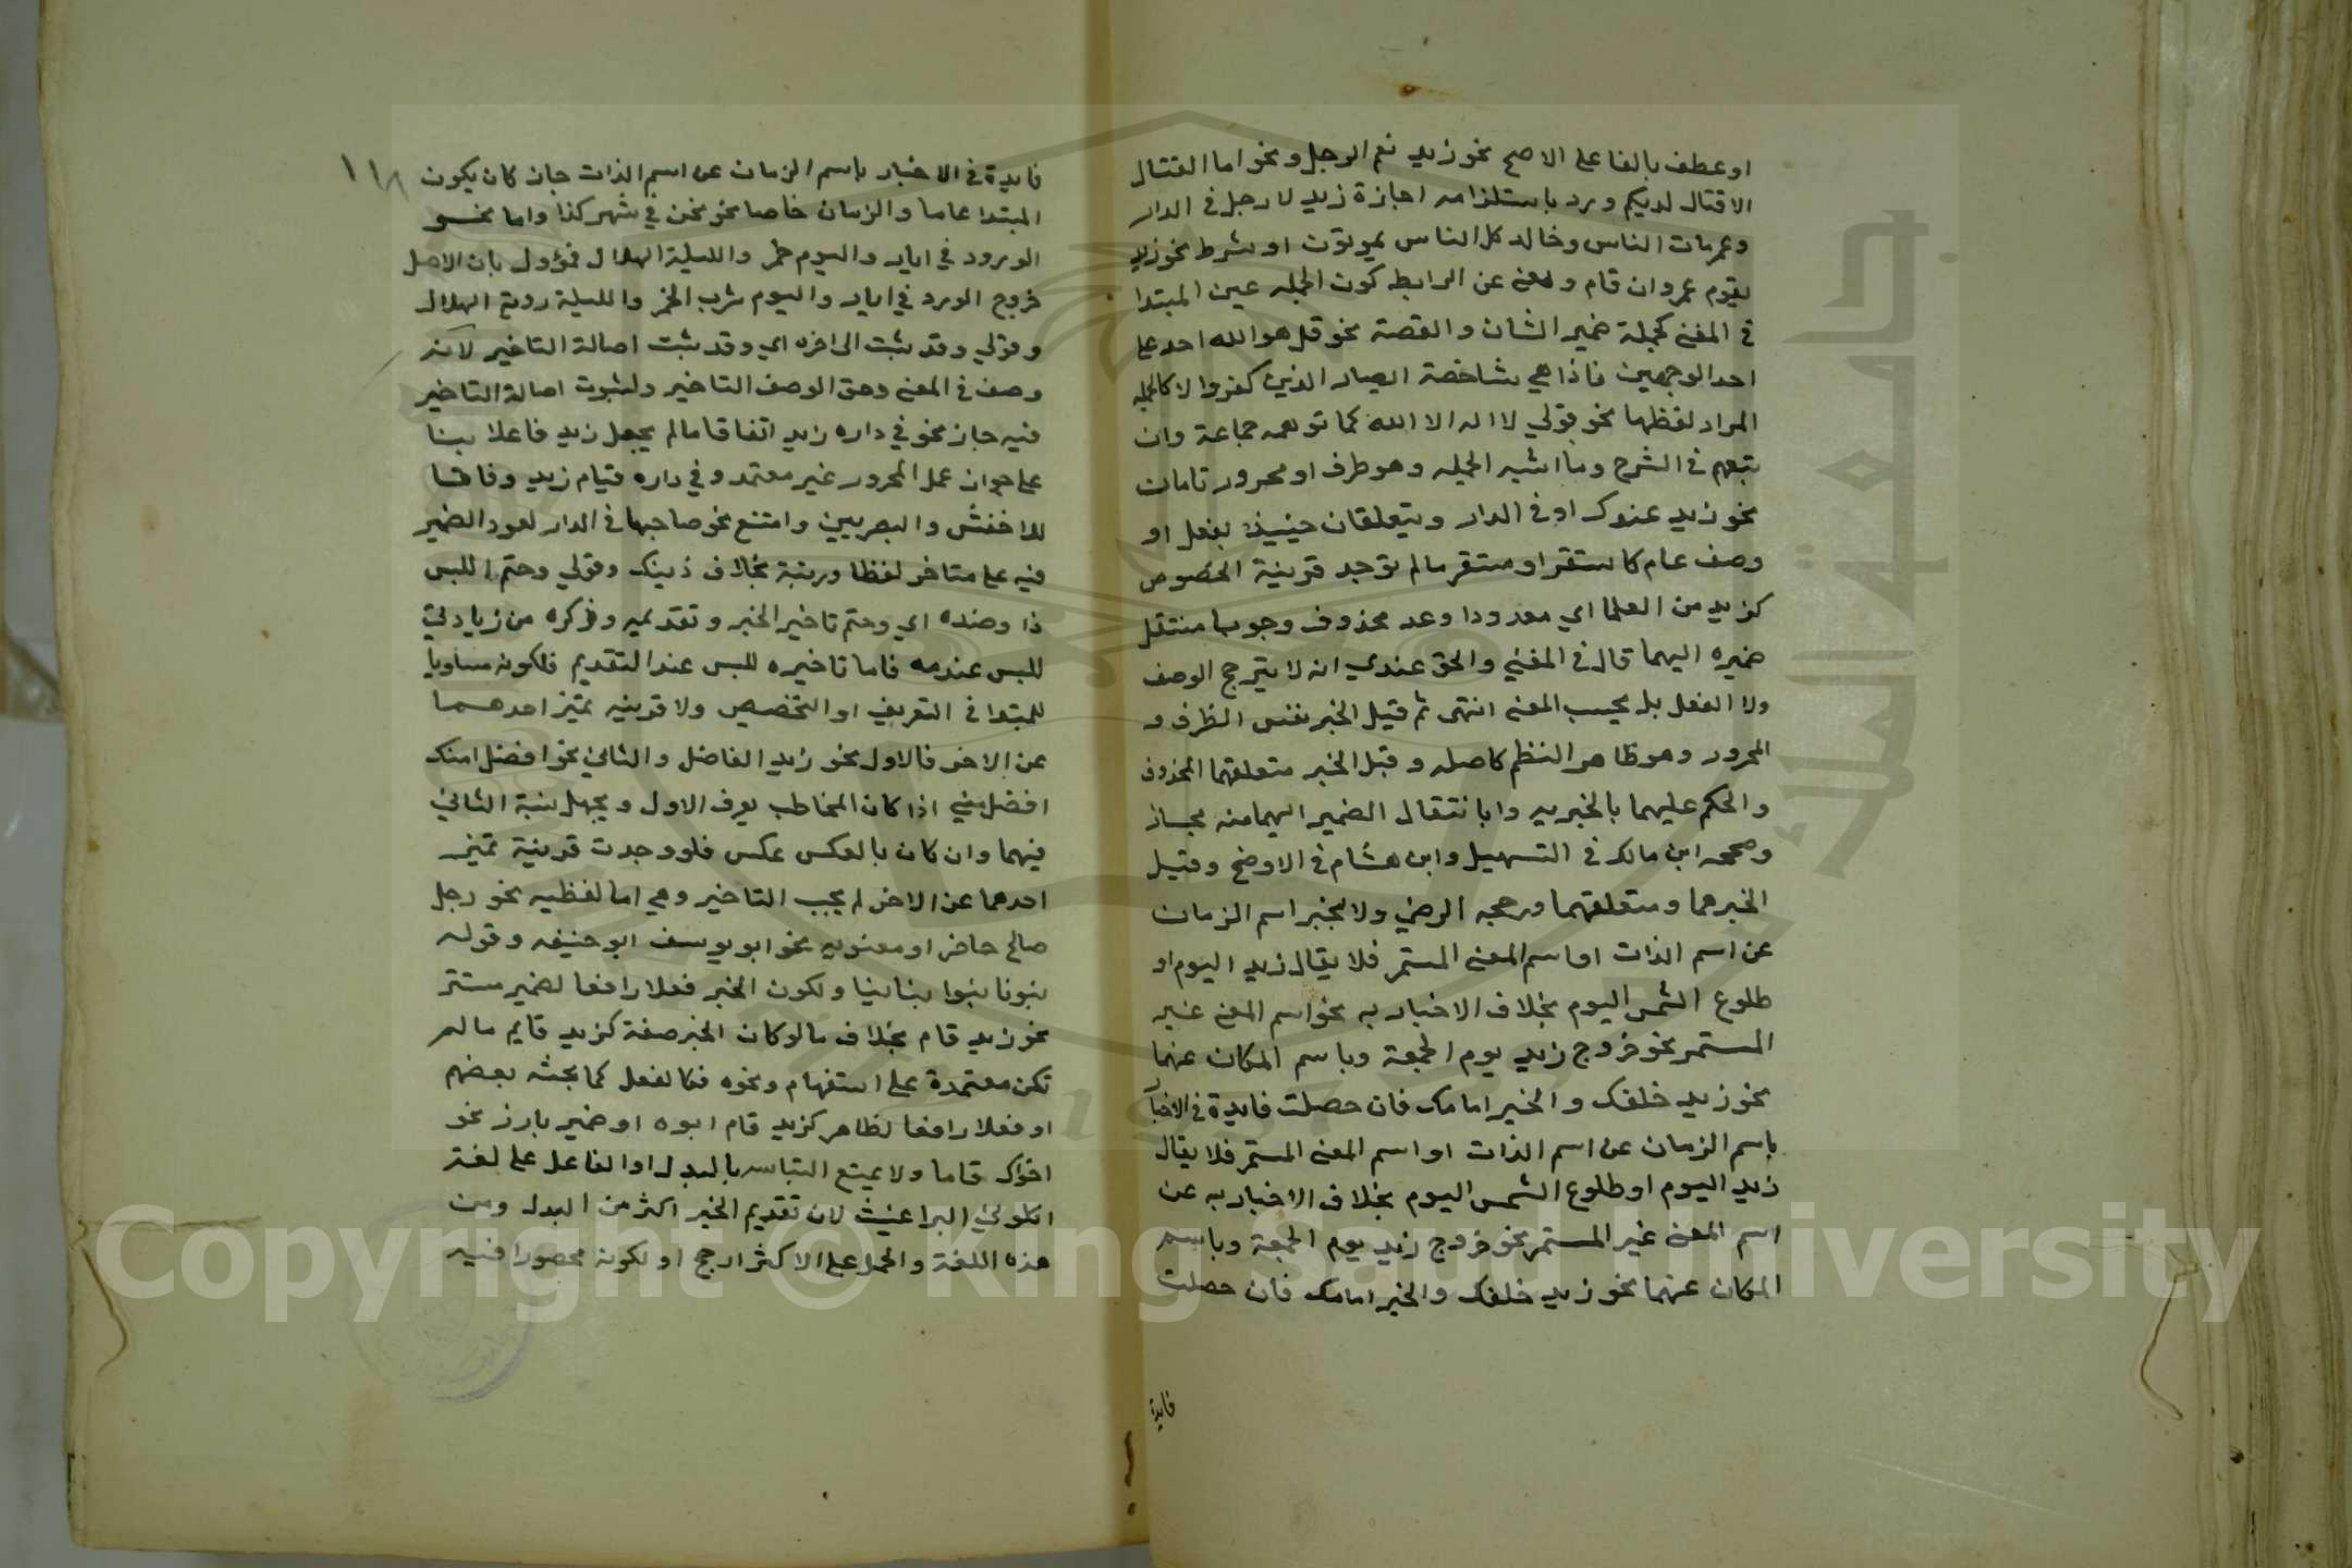 او عطف بالفا على الاصح نحو زيد نعم الرجل ونحو اما القتال
الاقتال لديكم ورد باستلزامه اجازة زيد لا رجل في الدار
وعمر مات الناس وخالد كل الناس يموتون او بشرط نحو زيد
يقوم عمرو ان قام ويغني عن الرابط كون الجمله عين المبتدا
في المعنى كجملة ضمير الشان والقصة نحو قل هو الله احد على
احد الوجهين فاذا هي شاخصة ابصار الذين كفروا لا كالجمله
المراد لفظها نحو قولي لا اله الا الله كما توهمه جماعة وان
تبعهم في الشرح وما اشبه الجمله وهو ظرف او مجرور تامان
نحو زيد عندك او في الدار ويتعلقان حينيذ بفعل او
وصف عام كاستقر او مستقر ما لم توجد قرينة الخصوص
كزيد من العلما اي معدودا وعد محذوف وجوبا منتقل
ضميره اليهما قال في المغني والحق عندي انه لا يترجح الوصف
ولا الفعل بل بحسب المعنى انتهى ثم قيل الخبر نفس الظرف و
المجرور وهو ظاهر النظم كاصله وقيل الخبر متعلقهما المحذوف
والحكم عليهما بالخبريه وابا نتقال الضمير اليهما منه مجاز
وصححه ابن مالك في التسهيل وابن هشام في الاوضح وقيل
الخبر هما ومتعلقهما ورجحه الرضي ولا يخبر اسم الزمان
عن اسم الذات او اسم المعنى المستمر فلا يقال زيد اليوم او
طلوع الشمس اليوم بخلاف الاخبار به نحو اسم المعنى غير
المستمر نحو خروج زيد يوم الجمعة وباسم المكان عنهما
نحو زيد خلفك والخير امامك فان حصلت فايدة في الاخبا
باسم الزمان عن اسم الذات او اسم المعنى المستمر فلا يقال
زيد اليوم او طلوع الشمس اليوم بخلاف الاخبار به عن
اسم المعنى غير المستمر نحو خروج زيد يوم الجمعة وباسم
المكان عنهما نحو زيد خلفك والخير امامك فان حصلت
فايدة
١١٨
فايدة في الاخبار باسم الزمان عن اسم الذات جاز كان يكون
المبتدا عاما والزمان خاصا نحو نحن في شهر كذا واما نحو
الورود في ايار واليوم خمر والليلة الهلال فمؤول بان الاصل
خروج الورد في ايار واليوم شرب الخمر والليلة روية الهلال
وقولي وقد يثبت الى اخره اي وقد يثبت اصالة التاخير لانه
وصف في المعنى وحق الوصف التاخير ولثبوت اصالة التاخير
فيه جاز نحو في داره زيد اتفاقا ما لم يجعل زيد فاعلا بنا
على جواز عمل المجرور غير معتمد وفي داره قيام زيد وفاقا
للاخفش والبصريين وامتنع نحو صاحبها في الدار لعود الضمير
فيه على متاخر لفظا ورتبة بخلاف ذينك وقولي وحتم اللبس
ذا وضده اي وحتم تاخير الخبر وتقديمه وذكره من زيادتي
للبس عندمه فاما تاخيره للبس عند التقديم فلكونه مساويا
للمبتدا في التعريف او التخصيص ولا قرينه تميز احدهما
عن الاخر فالاول نحو زيد الفاضل والثاني نحو افضل منك
افضل مني اذا كان المخاطب يعرف الاول ويجهل نسبة الثاني
فيهما وان كان بالعكس عكس فلو وجدت قرينة تميز
احدهما عن الاخر لم يجب التاخير وهي اما لفظيه نحو رجل
صالح حاضر او معنويه نحو ابو يوسف ابو حنيفه وقوله
بنونا بنوا بناينا ولكون الخبر فعلا رافعا لضمير مستتر
نحو زيد قام بخلاف ما لو كان الخبر صفة كزيد قايم ما لم
تكن معتمدة على استفهام ونحوه فكالفعل كما بحثه بعضهم
او فعلا رافعا لظاهر كزيد قام ابوه او ضمير بارز نحو
اخواك قاما ولا يمتنع التباسه بالبدل او الفاعل على لغة
اكلوني البراغيث لان تقديم الخبر اكثر من البدل ومن
هذه اللغة والحمل على الاكثر ارجح او لكونه محصورا فيه
Copyright © King Saud University